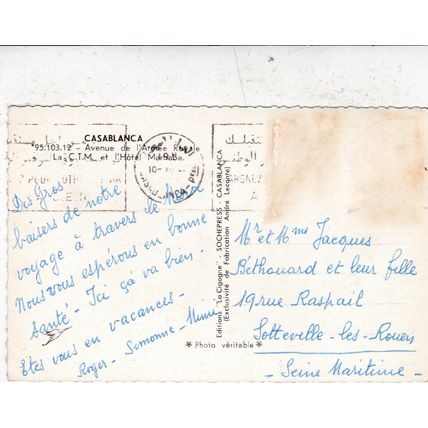 CASABLANCA
95.103.12 - Avenue de l'Armée Royale
La C.T.M. et l'Hôtel
CASABLANCA
Des Gros
baisers de notre
voyage à travers le Maroc
Nous vous espérons en bonne
santé - Ici çà va bien.
Etes vous en vacances -
Roger - Simonne -
Editions "La Cigogne" - SOCHEPRESS - CASABLANCA
(Exclusivité de Fabrication André Leconte)
* Photo véritable *
Mr et Mme Jacques
Béthouard et leur fille
19 rue Raspail
Sotteville-les-Rouen
- Seine Maritime -